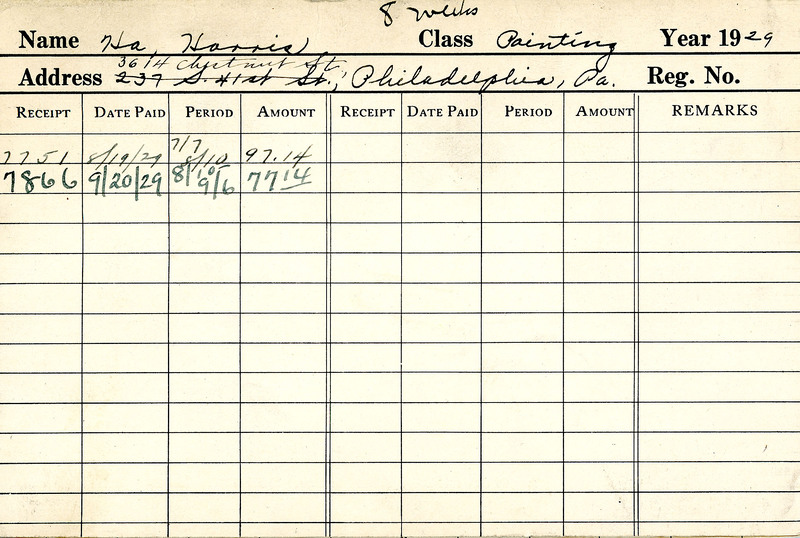 8 weeks
Name Ha, Harris Class Painting Year 1929
3614 Chestnut St.
Address 237 S. 41st St., Philadelphia, Pa. Reg. No.
RECEIPT DATE PAID PERIOD AMOUNT RECEIPT DATE PAID PERIOD AMOUNT REMARKS
7/7
7751 8/19/29 8/10 97.14
7866 9/20/29 8/10 9/6 77 14